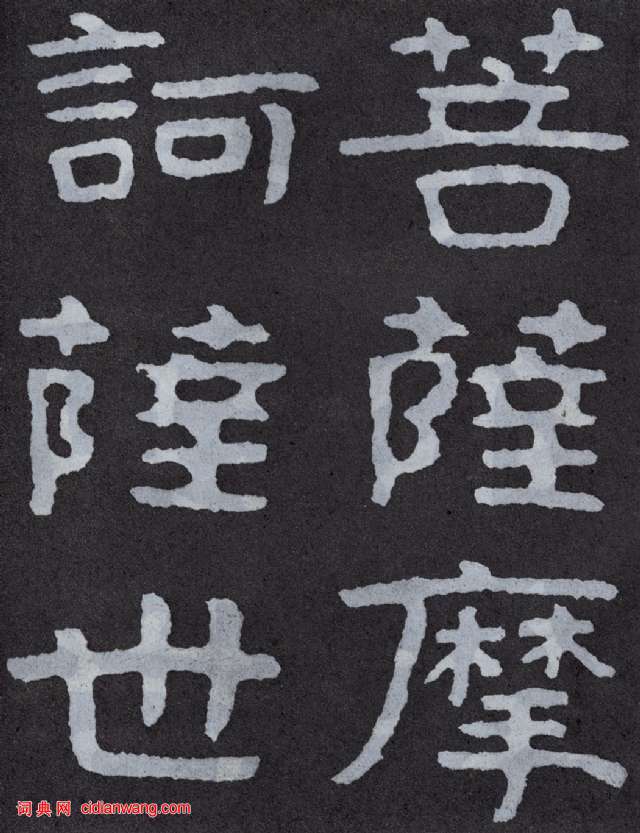 菩薩摩
訶薩世
词典网 cidianwang.com